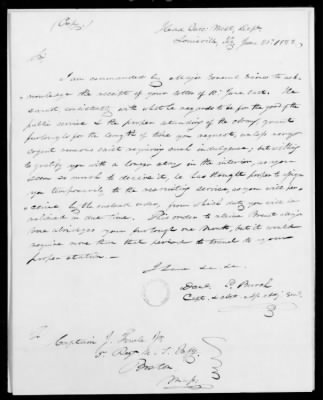 (Copy)
Head Qurs: West. Dept.
Louisville, Ky. June 21st 1823
Sir
I am commanded by Major General Gaines to ack-
nowledge the receipt of your letter of 10th June last. He
cannot consistently with what he regards to be for the good of the
public service & the proper standing of the army grant
furloughs for the length of time you request, unless very
urgent reasons exist requiring such indulgence, but willing
to gratify you with a longer stay in the interior, as you
seem so much to desire it, he has thought proper to assign
you temporarily to the recruiting service, as you will per-
ceive by the enclosed order, from which duty you will be
relieved in due time. This order to relieve Brevet Major
one abridges your furlough one Month, but it would
require more than that period to travel to your
proper station.—
I have &c. &c.
Danl. E. Burch
Capt. & Asst. Adj.
To
Captain J. Fowle Jr.
5 Regt U. S. Infy.
Boston
Ms.